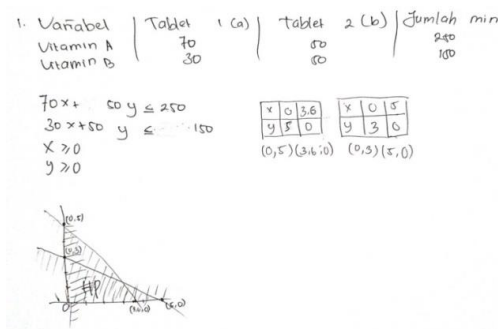 1. Variabel | Tablet 1 (a) | Tablet 2 (b) | Jumlah min
Vitamin A 70 50 250
Vitamin B 30 50 150
70x + 50 y ≤ 250
30x + 50 y ≤ 150
x ≥ 0
y ≥ 0
x 0 3.6
y 5 0
(0,5) (3,6;0)
x 0 5
y 3 0
(0,3) (5,0)
(0,5)
(0,3)
HP
0
(5,0)